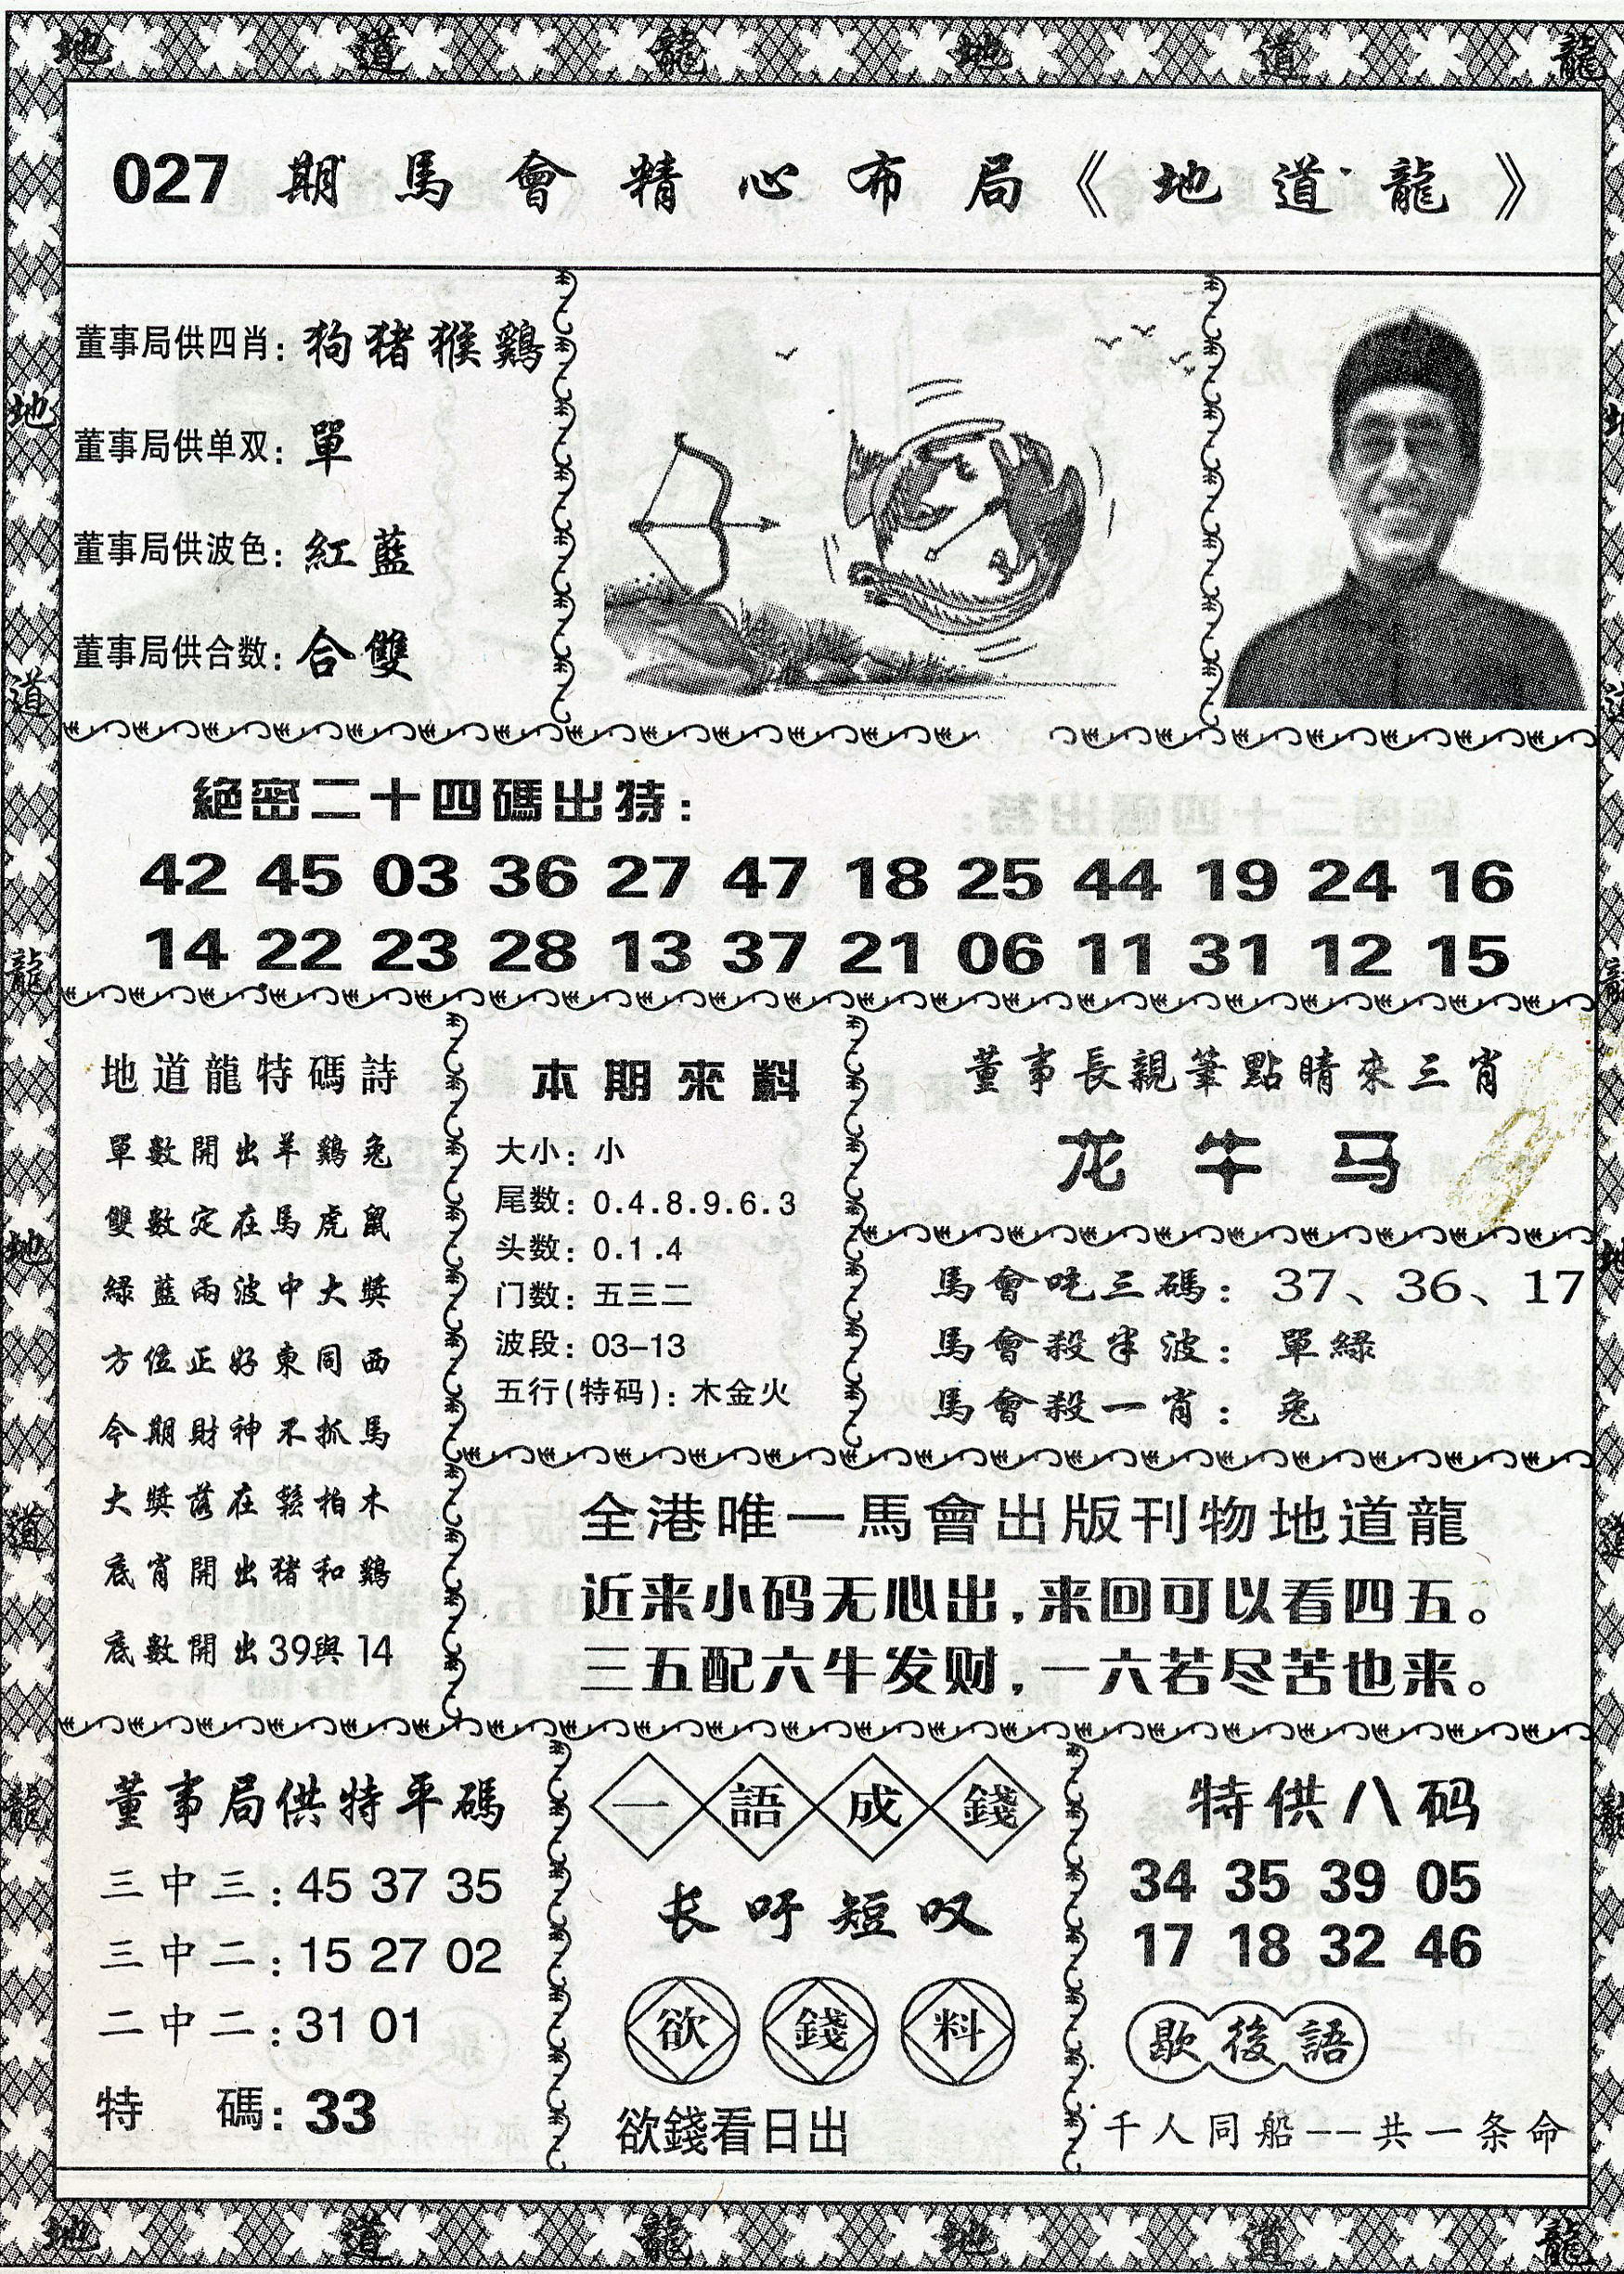 地 道 龍 地 道 龍
027 期馬會精心布局《地道龍》
董事局供四肖：狗猪猴鷄
董事局供单双：單
董事局供波色：紅藍
董事局供合数：合雙
絕密二十四碼出特：
42 45 03 36 27 47 18 25 44 19 24 16
14 22 23 28 13 37 21 06 11 31 12 15
地道龍特碼詩
單數開出羊鷄兔
雙數定在馬虎鼠
緑藍兩波中大獎
方位正好東同西
今期財神不抓馬
大獎落在鬆柏木
底肖開出猪和鷄
底數開出39與14
本期來料
大小：小
尾数：0.4.8.9.6.3
头数：0.1.4
门数：五三二
波段：03-13
五行(特码)：木金火
董事長親筆點晴來三肖
龙 牛 马
馬會吃三碼：37、36、17
馬會殺半波：單緑
馬會殺一肖：兔
全港唯一馬會出版刊物地道龍
近来小码无心出，来回可以看四五。
三五配六牛发财，一六若尽苦也来。
董事局供特平碼
三中三：45 37 35
三中二：15 27 02
二中二：31 01
特 碼：33
一語成錢
长吁短叹
欲錢料
欲錢看日出
特供八码
34 35 39 05
17 18 32 46
歇後語
千人同船--共一条命
地 道 龍 地 道 龍